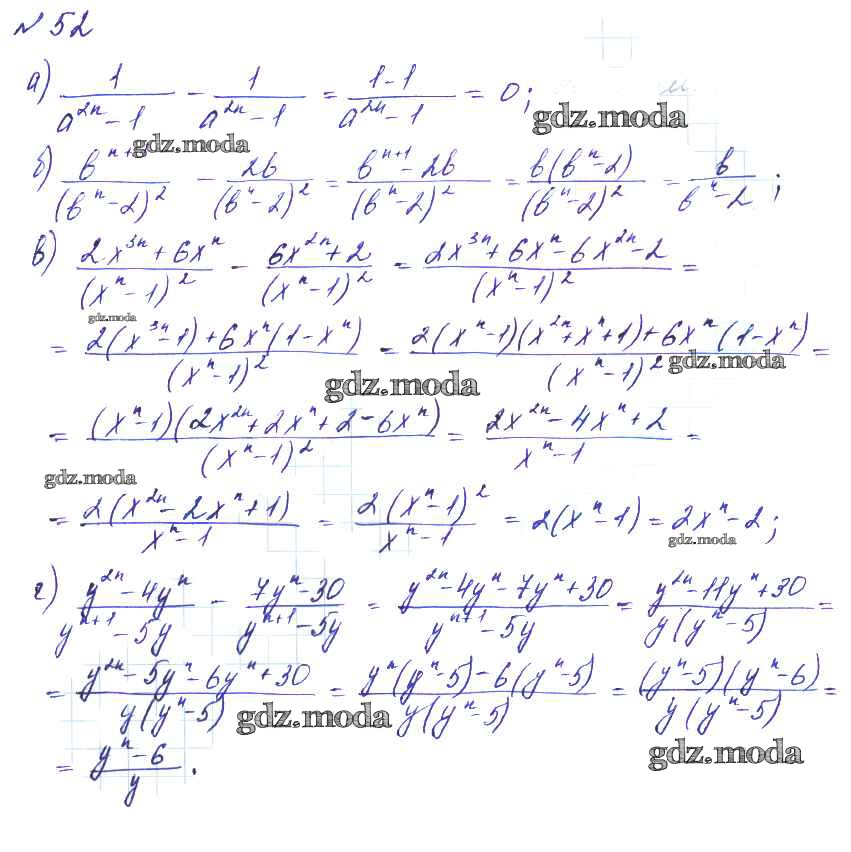 № 52
а) 1/(a^(2n) - 1) - 1/(a^(2n) - 1) = (1-1)/(a^(2n) - 1) = 0;
gdz.moda
gdz.moda
б) b^(n+1)/(b^n - 2)^2 - 2b/(b^n - 2)^2 = (b^(n+1) - 2b)/(b^n - 2)^2 = b(b^n - 2)/(b^n - 2)^2 = b/(b^n - 2);
в) (2x^(3n) + 6x^n)/(x^n - 1)^2 - (6x^(2n) + 2)/(x^n - 1)^2 = (2x^(3n) + 6x^n - 6x^(2n) - 2)/(x^n - 1)^2 =
gdz.moda
= (2(x^(3n) - 1) + 6x^n(1 - x^n))/(x^n - 1)^2 = (2(x^n - 1)(x^(2n) + x^n + 1) + 6x^n(1 - x^n))/(x^n - 1)^2 =
gdz.moda
gdz.moda
= (x^n - 1)(2x^(2n) + 2x^n + 2 - 6x^n)/(x^n - 1)^2 = (2x^(2n) - 4x^n + 2)/(x^n - 1) =
gdz.moda
= 2(x^(2n) - 2x^n + 1)/(x^n - 1) = 2(x^n - 1)^2/(x^n - 1) = 2(x^n - 1) = 2x^n - 2;
gdz.moda
г) (y^(2n) - 4y^n)/(y^(n+1) - 5y) - (7y^n - 30)/(y^(n+1) - 5y) = (y^(2n) - 4y^n - 7y^n + 30)/(y^(n+1) - 5y) = (y^(2n) - 11y^n + 30)/(y(y^n - 5)) =
= (y^(2n) - 5y^n - 6y^n + 30)/(y(y^n - 5)) = (y^n(y^n - 5) - 6(y^n - 5))/(y(y^n - 5)) = (y^n - 5)(y^n - 6)/(y(y^n - 5)) =
gdz.moda
gdz.moda
= (y^n - 6)/y.